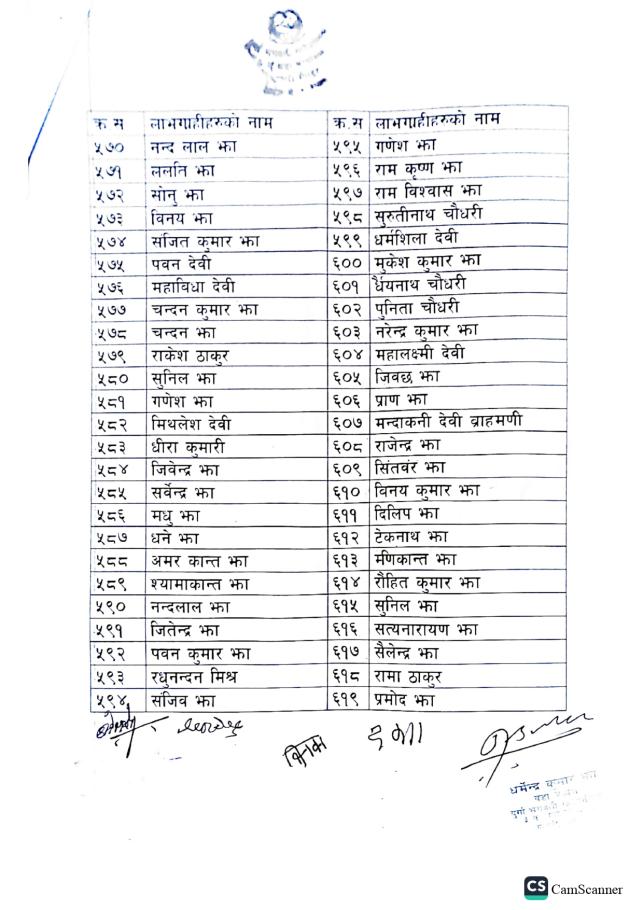 क्र स लाभग्राहीहरुको नाम क्र.स लाभग्राहीहरुको नाम
५७० नन्द लाल झा ५९५ गणेश झा
५७१ ललति झा ५९६ राम कृष्ण झा
५७२ सोनु झा ५९७ राम विश्वास झा
५७३ विनय झा ५९८ सुरुतीनाथ चौधरी
५७४ संजित कुमार झा ५९९ धर्मशिला देवी
५७५ पवन देवी ६०० मुकेश कुमार झा
५७६ महाविधा देवी ६०१ र्धैयनाथ चौधरी
५७७ चन्दन कुमार झा ६०२ पुनिता चौधरी
५७८ चन्दन झा ६०३ नरेन्द्र कुमार झा
५७९ राकेश ठाकुर ६०४ महालक्ष्मी देवी
५८० सुनिल झा ६०५ जिवछ झा
५८१ गणेश झा ६०६ प्राण झा
५८२ मिथलेश देवी ६०७ मन्दाकनी देवी व्राहमणी
५८३ धीरा कुमारी ६०८ राजेन्द्र झा
५८४ जिवेन्द्र झा ६०९ सिंतवंर झा
५८५ सर्वेन्द्र झा ६१० विनय कुमार झा
५८६ मधु झा ६११ दिलिप झा
५८७ धने झा ६१२ टेकनाथ झा
५८८ अमर कान्त झा ६१३ र्मणिकान्त झा
५८९ श्यामाकान्त झा ६१४ रौहित कुमार झा
५९० नन्दलाल झा ६१५ सुनिल झा
५९१ जितेन्द्र झा ६१६ सत्यनारायण झा
५९२ पवन कुमार झा ६१७ सैलेन्द्र झा
५९३ रधुनन्दन मिश्र ६१८ रामा ठाकुर
५९४ संजिव झा ६१९ प्रमोद झा
धर्मेन्द्र कुमार झा
CS CamScanner